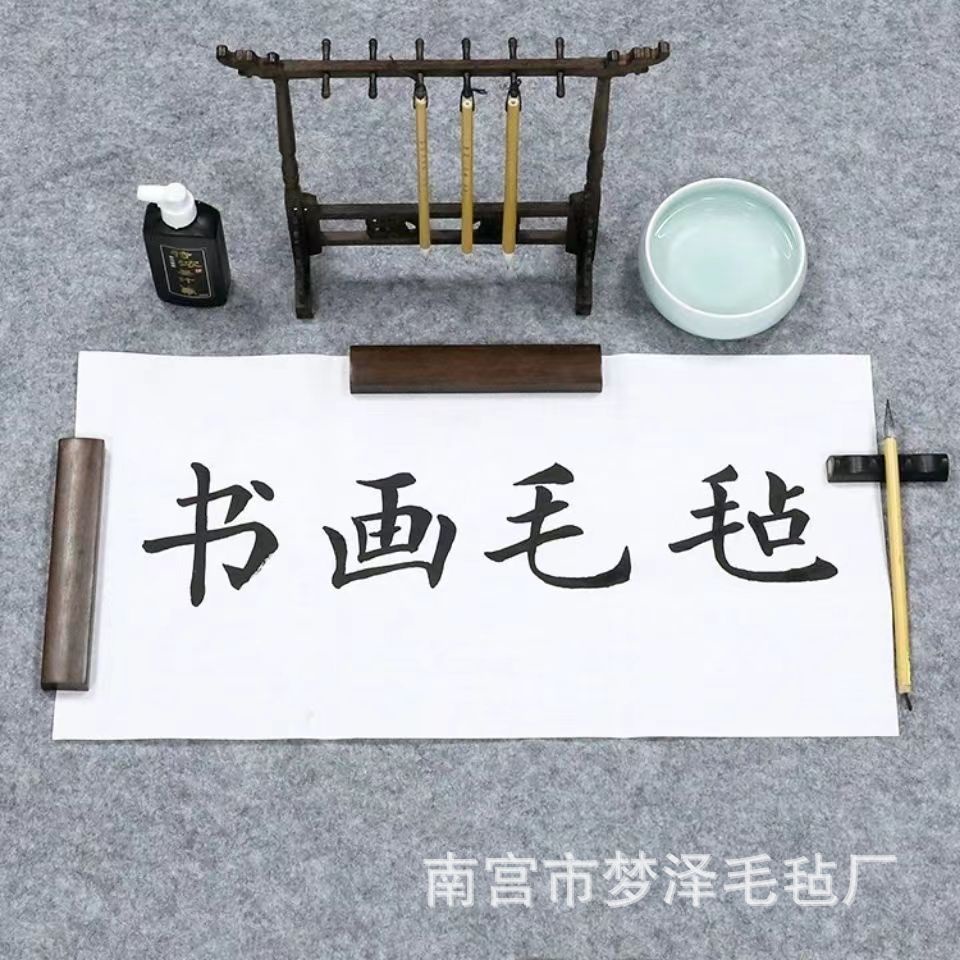 书画毛毡
南宫市梦泽毛毡厂